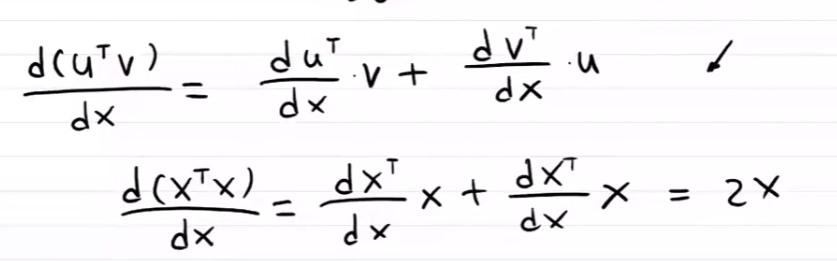 d(uᵀv)/dx = duᵀ/dx · v + dvᵀ/dx · u
d(xᵀx)/dx = dxᵀ/dx x + dxᵀ/dx x = 2x